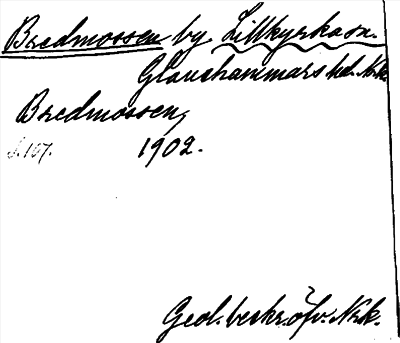 Bredmossen by Lillkyrka sn.
Glanshammars hd. Nrk
Bredmossen,
s. 157. 1902.
Geol. beskr. öfv. Nrk.